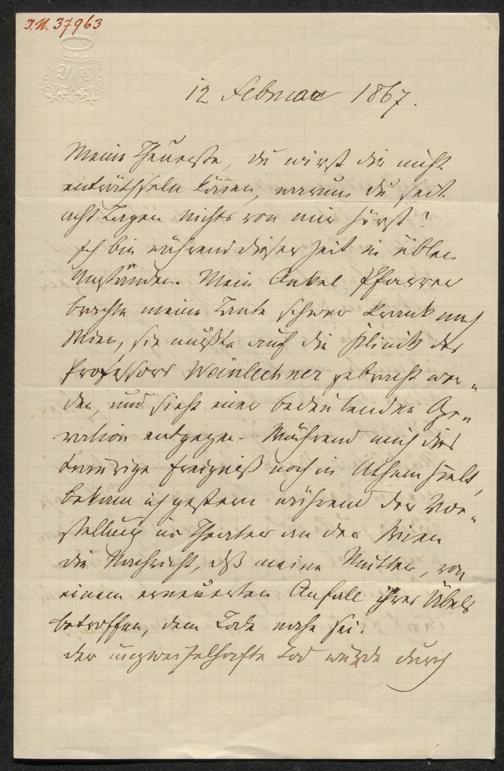 I.N. 37963
12 Februar 1867.
Meine Theuerste, du wirst dir nicht
enträthseln können, warum du seit
acht Tagen nichts von mir hörst?
Ich bin während dieser Zeit in üblen
Umständen. Mein Onkel Pfarrer
brachte meine Tante schwer krank nach
Wien, sie mußte auf die Klinik des
Professors Weinlechner gebracht wer„
den, und sieht einer bedeutenden Ope„
ration entgegen. Während mich dies
traurige Ereigniß noch in Athem hielt,
bekam ich gestern während der Vor„
stellung im Theater an der Wien
die Nachricht, daß meine Mutter, von
einem erneuerten Anfall ihres Übels
betroffen, dem Tode nahe sei.
der unzweifelhafte Tod würde durch